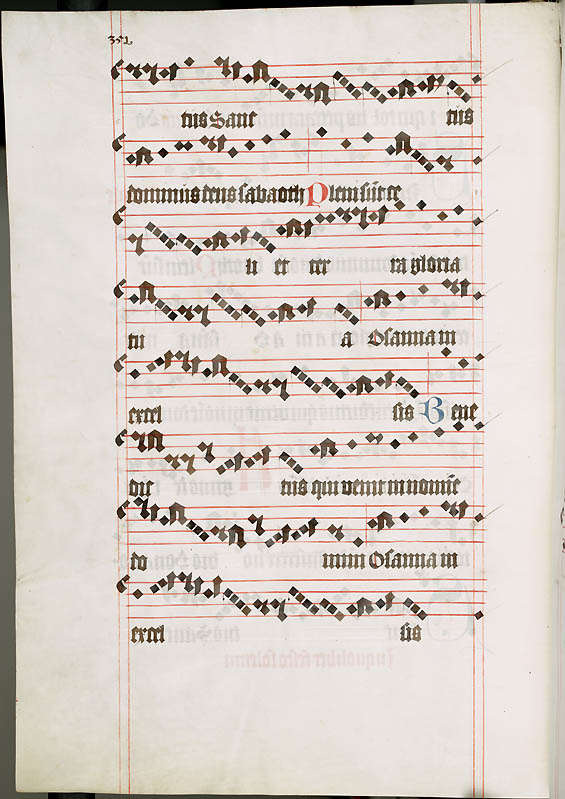 351
tus Sanc tus
dominus deus sabaoth Pleni sūt ce
li et ter ra gloria
tu a Osanna in
excel sis Bene
dic tus qui venit in nomīe
do mini Osanna in
excel sis